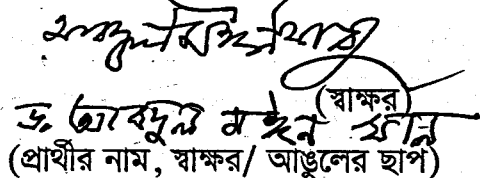 (স্বাক্ষর)
ড. আবদুল মঈন খান
(প্রার্থীর নাম, স্বাক্ষর/ আঙুলের ছাপ)